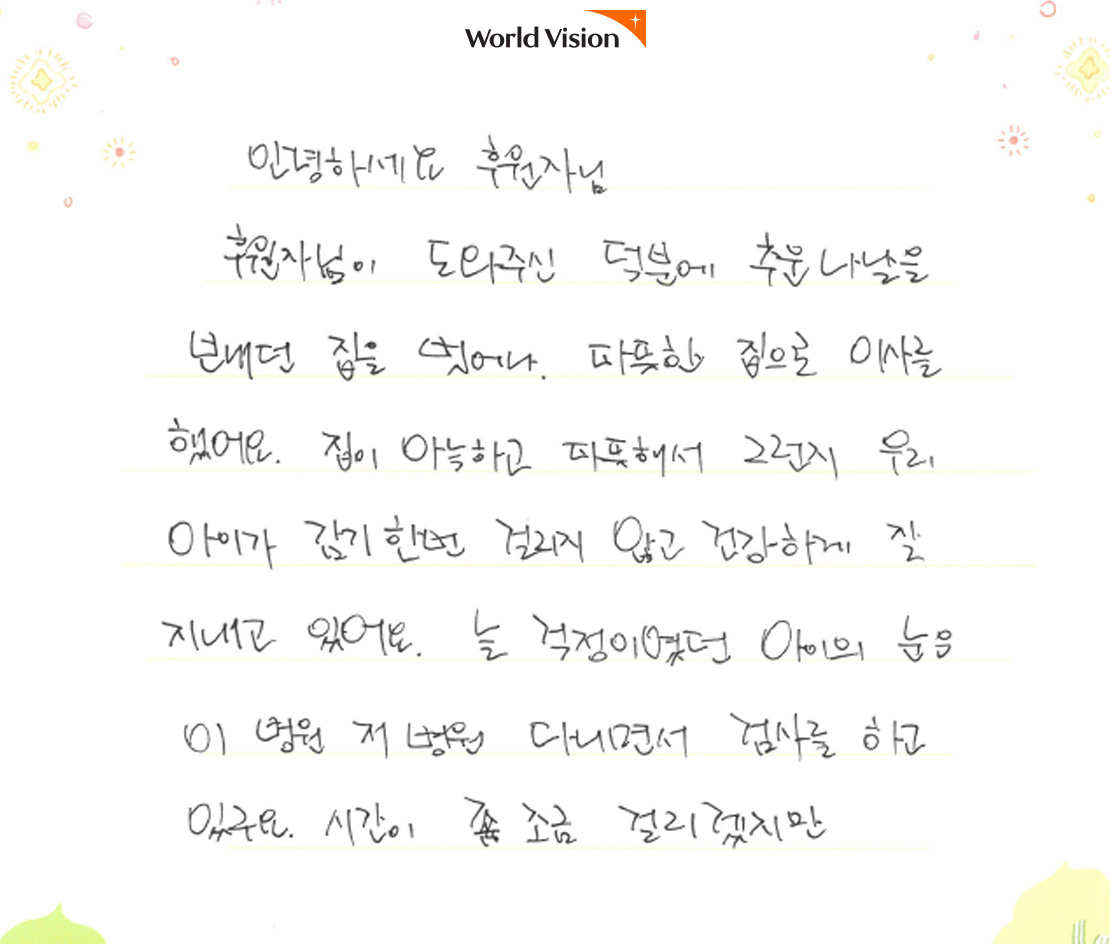 World Vision
안녕하세요 후원자님
후원자님이 도와주신 덕분에 추운 나날을
보내던 집을 벗어나. 따뜻한 집으로 이사를
했어요. 집이 아늑하고 따뜻해서 그런지 우리
아이가 감기 한번 걸리지 않고 건강하게 잘
지내고 있어요. 늘 걱정이였던 아이의 눈은
이 병원 저 병원 다니면서 검사를 하고
있구요. 시간이 조금 걸리겠지만